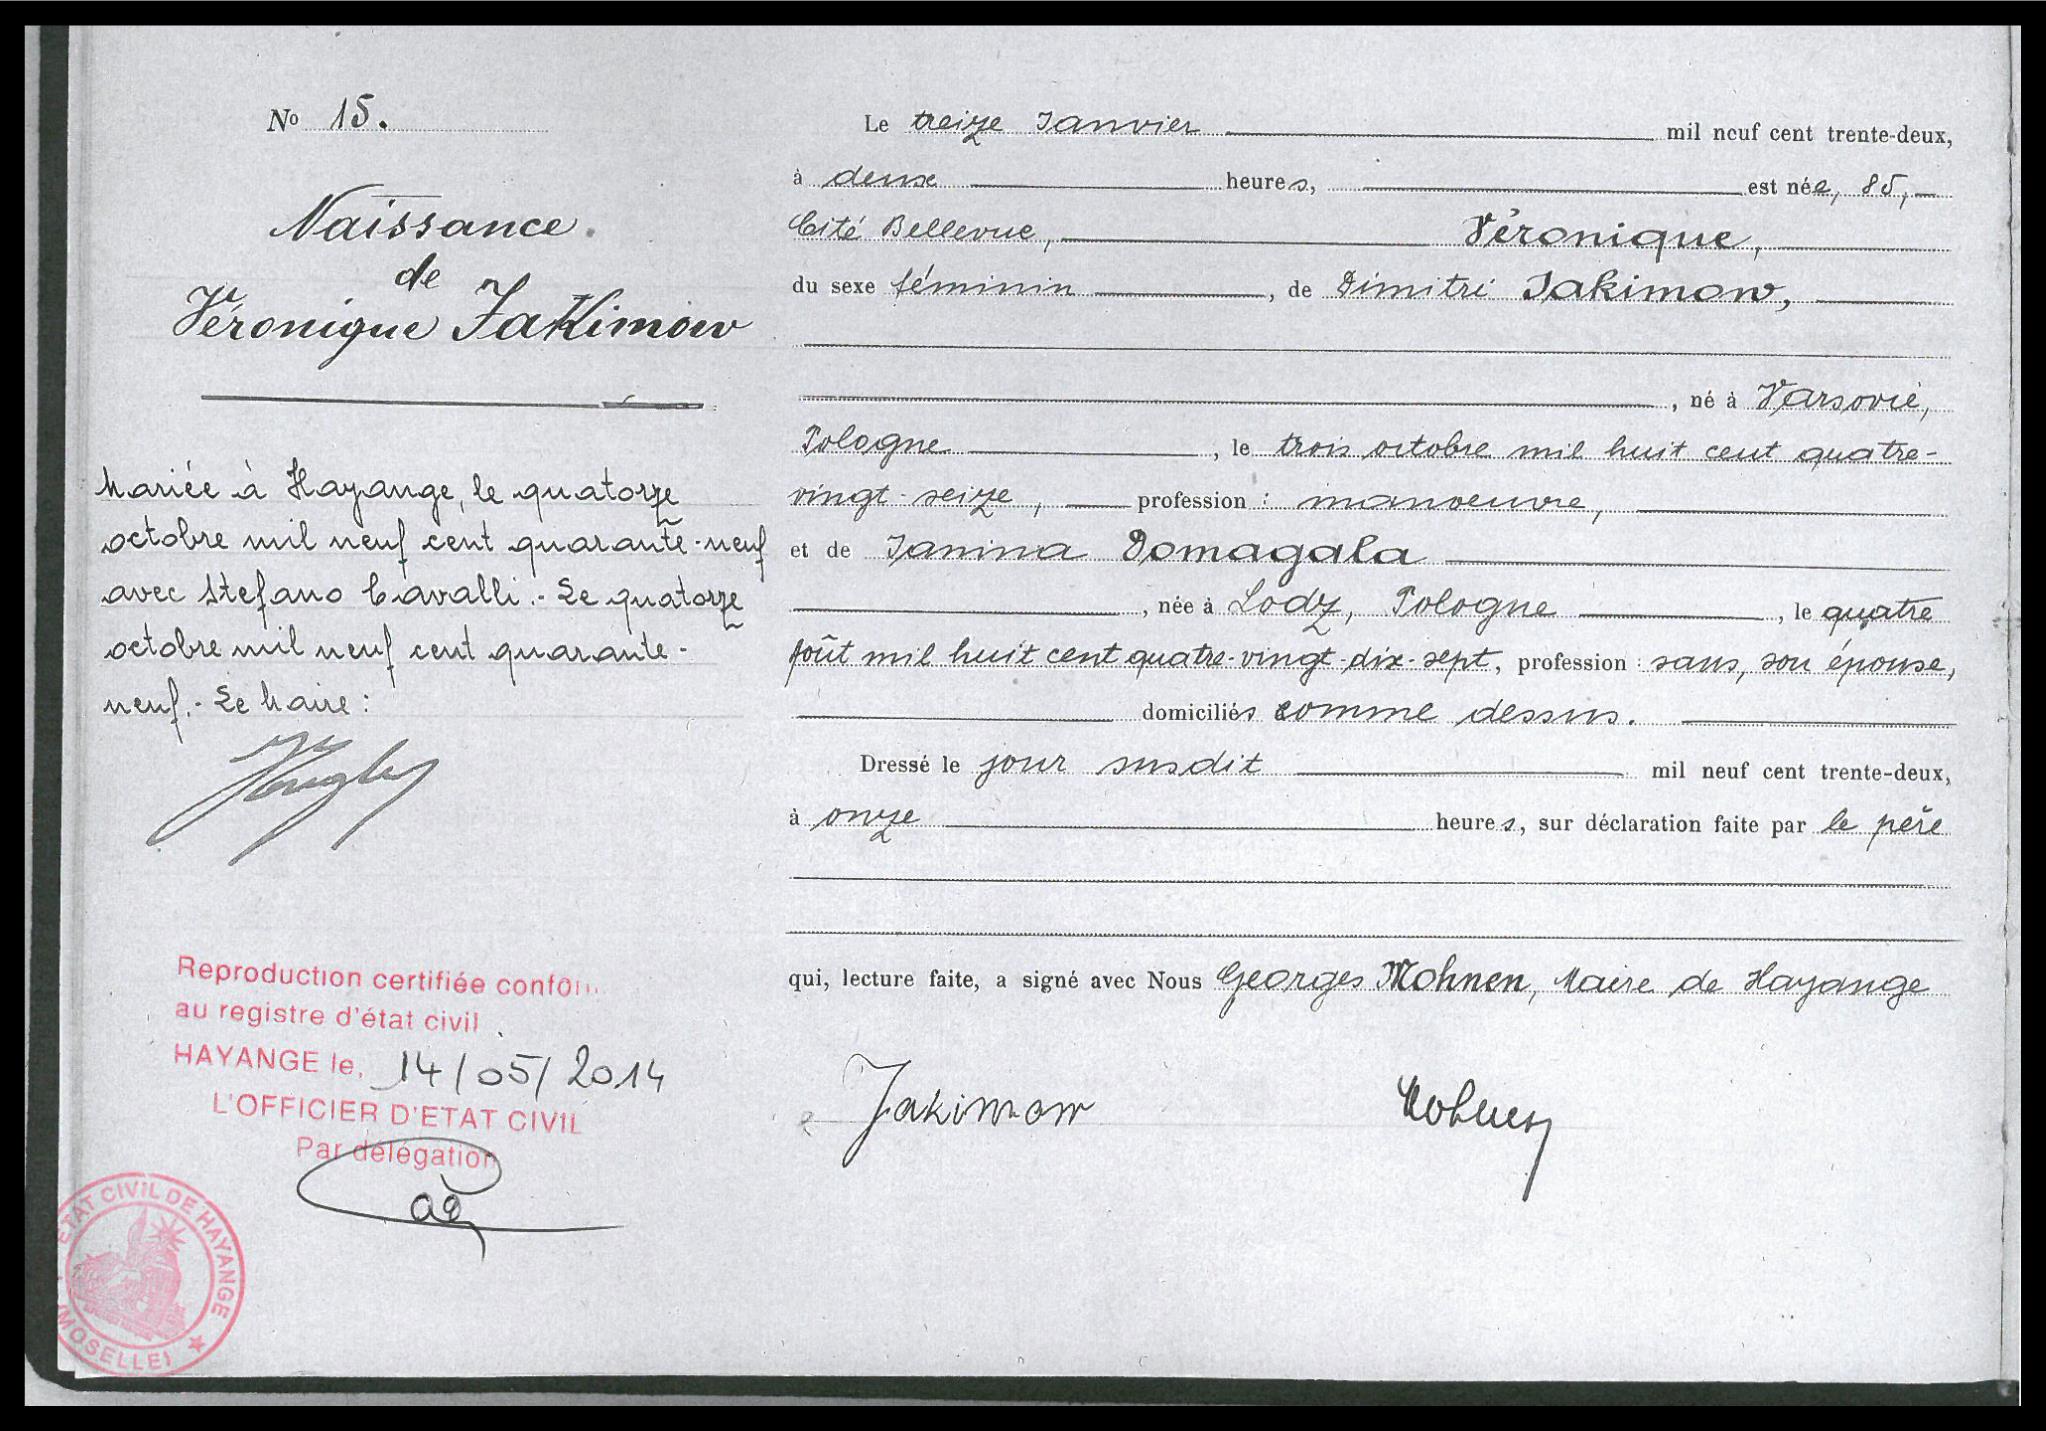 No 15.
Naissance.
de
Véronique Jakimow
Mariée à Hayange, le quatorze
octobre mil neuf cent quarante-neuf
avec Stefano Cavalli.- Le quatorze
octobre mil neuf cent quarante-
neuf.- Le Maire:
Reproduction certifiée confor
au registre d'état civil
HAYANGE le, 14/05/2014
L'OFFICIER D'ETAT CIVIL
Par délégation
ETAT CIVIL DE HAYANGE
(MOSELLE)
Le treize Janvier mil neuf cent trente-deux,
à deux heures, est née, 85,
Cité Bellevue, Véronique,
du sexe féminin, de Dimitri Jakimow,
, né à Varsovie,
Pologne, le trois octobre mil huit cent quatre-
vingt-seize, profession: manoeuvre,
et de Janina Domagala
, née à Lodz, Pologne, le quatre
Août mil huit cent quatre-vingt-dix-sept, profession: sans, son épouse,
domiciliés comme dessus.
Dressé le jour susdit mil neuf cent trente-deux,
à onze heures, sur déclaration faite par le père
qui, lecture faite, a signé avec Nous Georges Mohnen, Maire de Hayange
Jakimow Mohnen